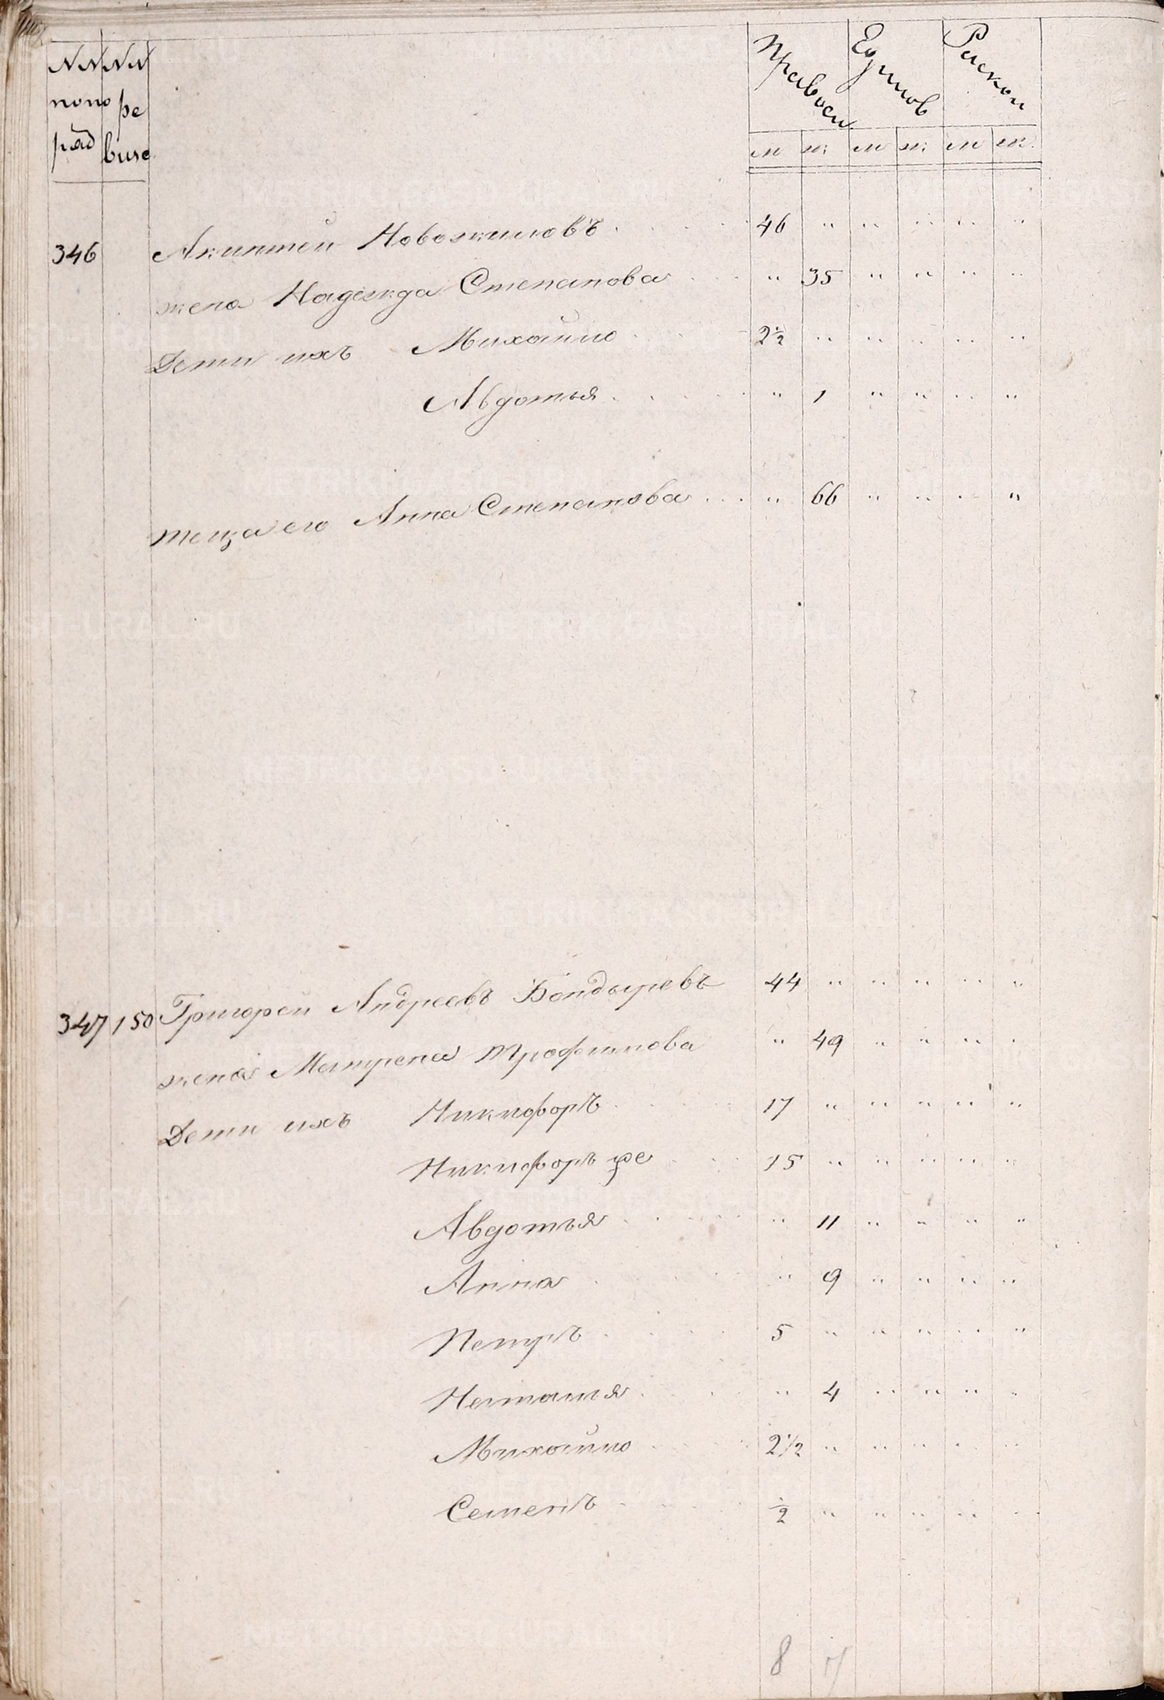 NN NN
по по ре
ряд визс
Правосл Единов Раскол
м ж м ж м ж
346 Акинтей Новожиловъ 46
жена Надежда Степанова 35
Дети ихъ Михайло 2½
Авдотья 1
теща его Анна Степанова 66
347 150 Григорей Андреевъ Бондыревъ 44
жена Матрена Трофимова 49
Дети ихъ Никифоръ 17
Никифоръ же 15
Авдотья 11
Анна 9
Петръ 5
Наталья 4
Михайло 2½
Семенъ ½
8 7